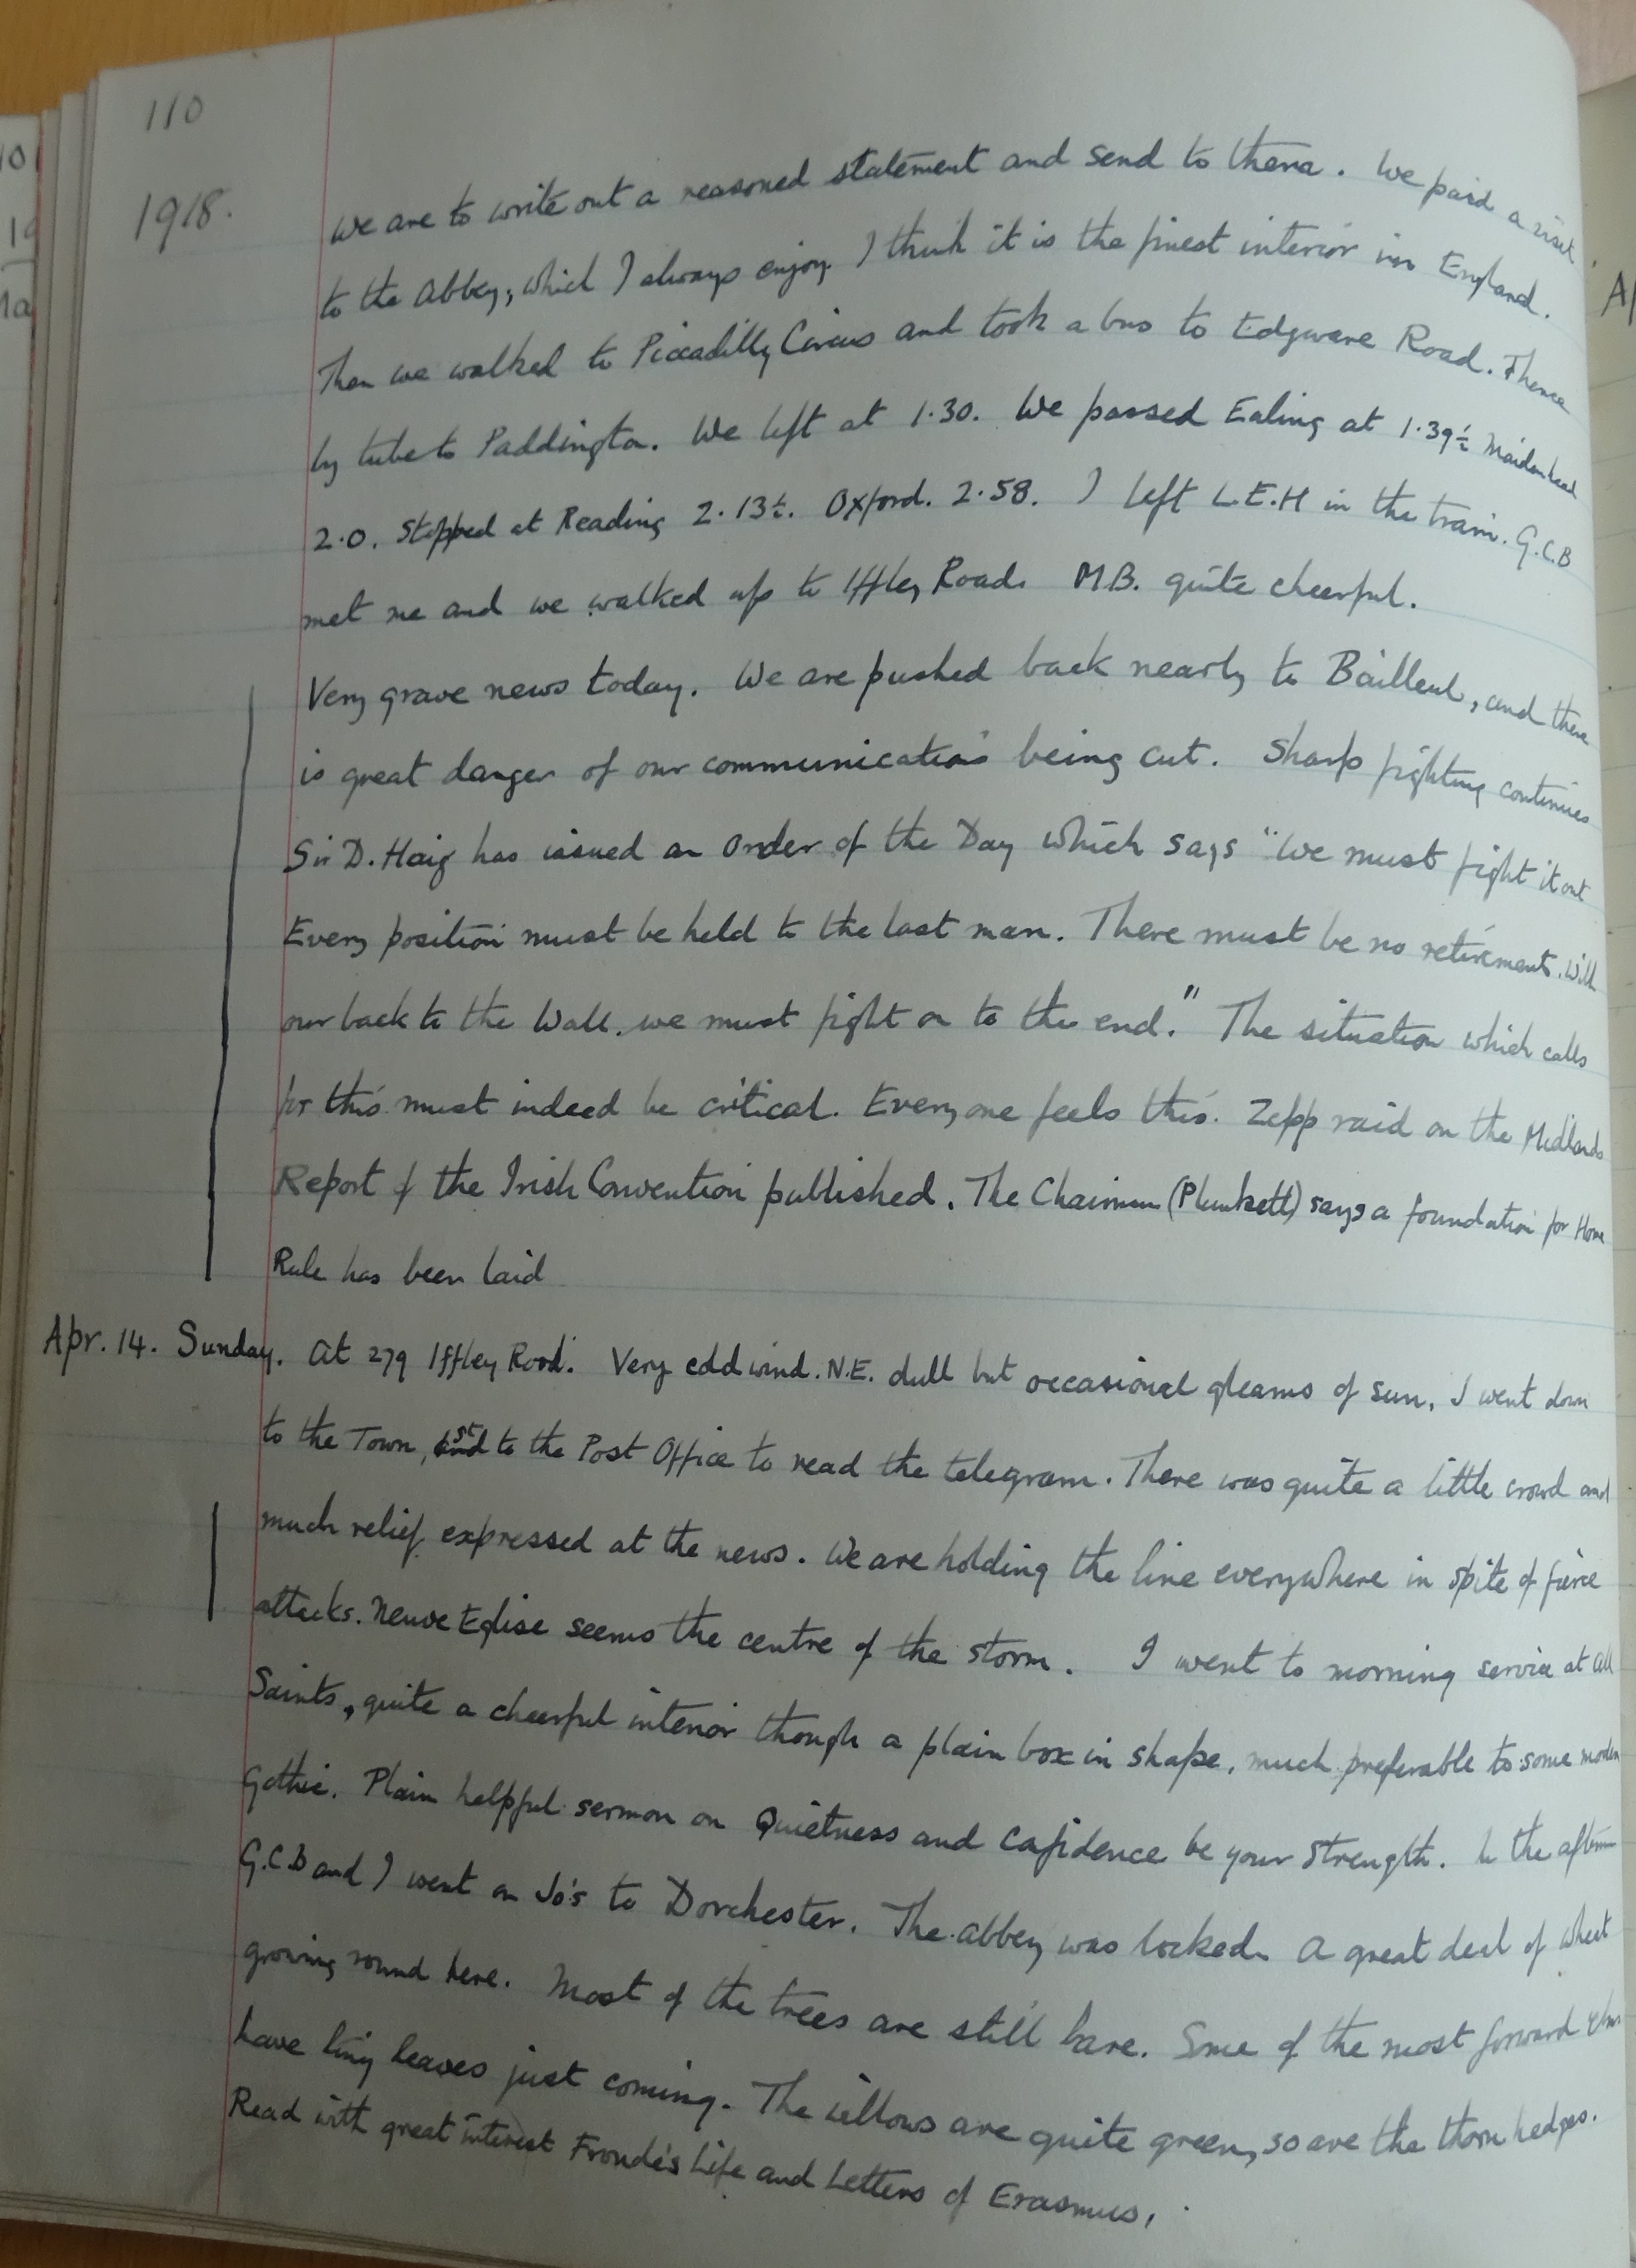 110
1918.
we are to write out a reasoned statement and send to them. We paid a visit
to the Abbey, which I always enjoy I think it is the finest interior in England.
Then we walked to Piccadilly Circus and took a bus to Edgware Road. Thence
by tube to Paddington. We left at 1.30. We passed Ealing at 1.39½ Maidenhead
2.0. Stopped at Reading 2.13½. Oxford. 2.58. I left L.E.H in the train. G.C.B
met me and we walked up to Iffley Road. M.B. quite cheerful.
Very grave news today. We are pushed back nearly to Bailleul, and there
is great danger of our communications being cut. Sharp fighting continues
Sir D. Haig has issued an Order of the Day which says "We must fight it out
Every position must be held to the last man. There must be no retirement. With
our back to the Wall. we must fight on to the end." The situation which calls
for this must indeed be critical. Every one feels this. Zepp raid on the Midlands
Report of the Irish Convention published. The Chairman (Plunkett) says a foundation for Home
Rule has been laid
Apr. 14. Sunday. At 279 Iffley Road. Very cold wind. N.E. dull but occasional gleams of sun. I went down
to the Town, 1st to the Post Office to read the telegram. There was quite a little crowd and
much relief expressed at the news. We are holding the line everywhere in spite of fierce
attacks. Neuve Eglise seems the centre of the storm. I went to morning service at All
Saints, quite a cheerful interior though a plain box in shape, much preferable to some modern
Gothic. Plain helpful sermon on Quietness and Confidence be your strength. In the afternoon
G.C.B and I went on Jo's to Dorchester. The abbey was locked. A great deal of wheat
growing round here. Most of the trees are still bare. Some of the most forward elms
have tiny leaves just coming. The willows are quite green, so are the thorn hedges.
Read with great interest Froude's Life and Letters of Erasmus.